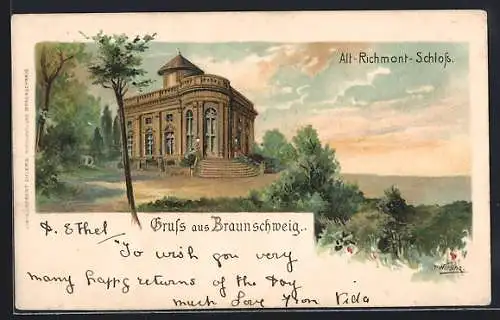 Alt-Richmont-Schloß.
Gruss aus Braunschweig..
D. Ethel
"To wish you very
many happy returns of the Day
much Love from Vida